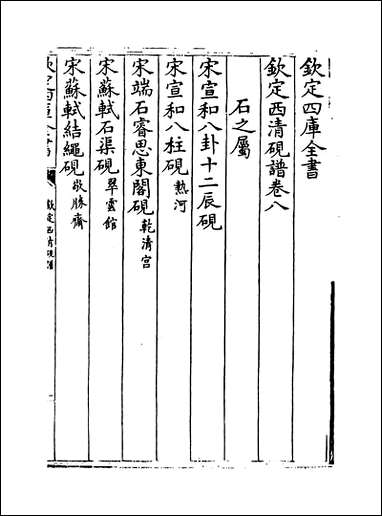 欽定四庫全書
欽定西清硯譜卷八
石之屬
宋宣和八卦十二辰硯
宋宣和八柱硯熱河
宋端石睿思東閣硯乾清宫
宋蘇軾石渠硯翠雲館
宋蘇軾結繩硯敬勝齋
欽定西清硯譜